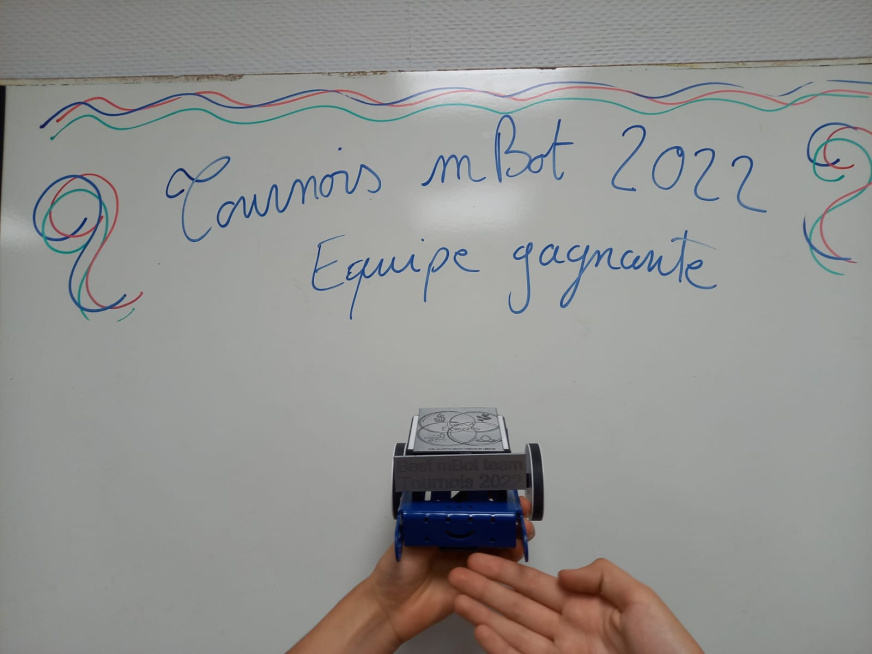 Tournois mBot 2022
Equipe gagnante
Best mBot team
Tournois 2022